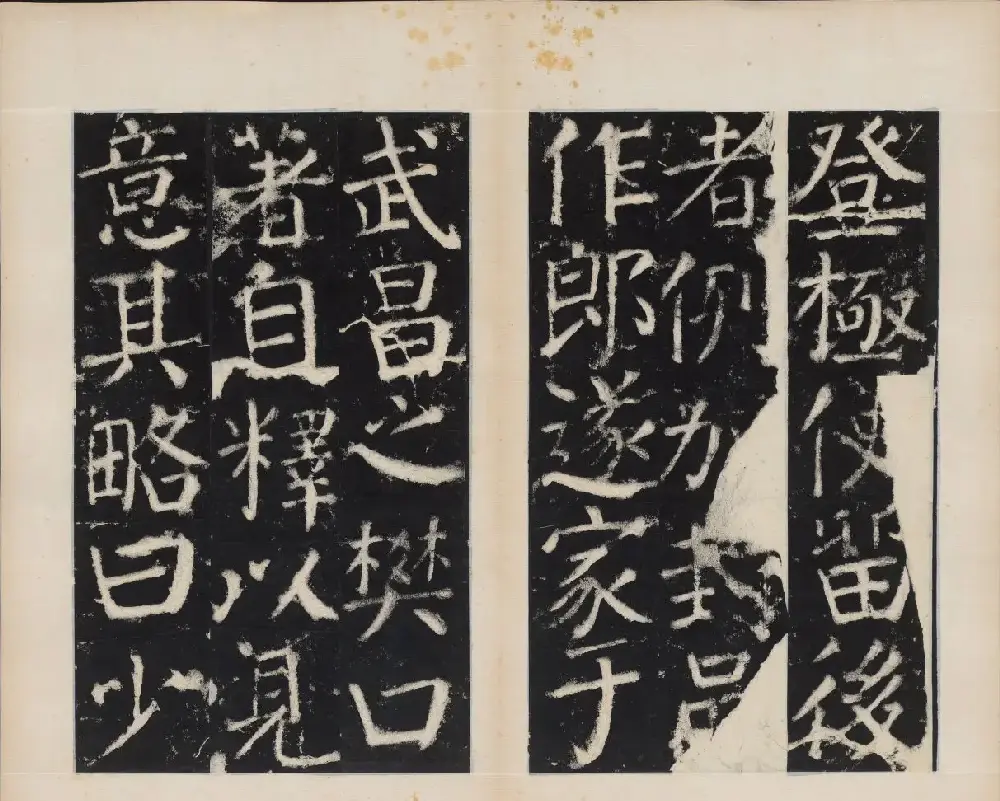 登極使留後
者例加封邑
作郎遂家于
武昌之樊口
著自釋以見
意其略曰少